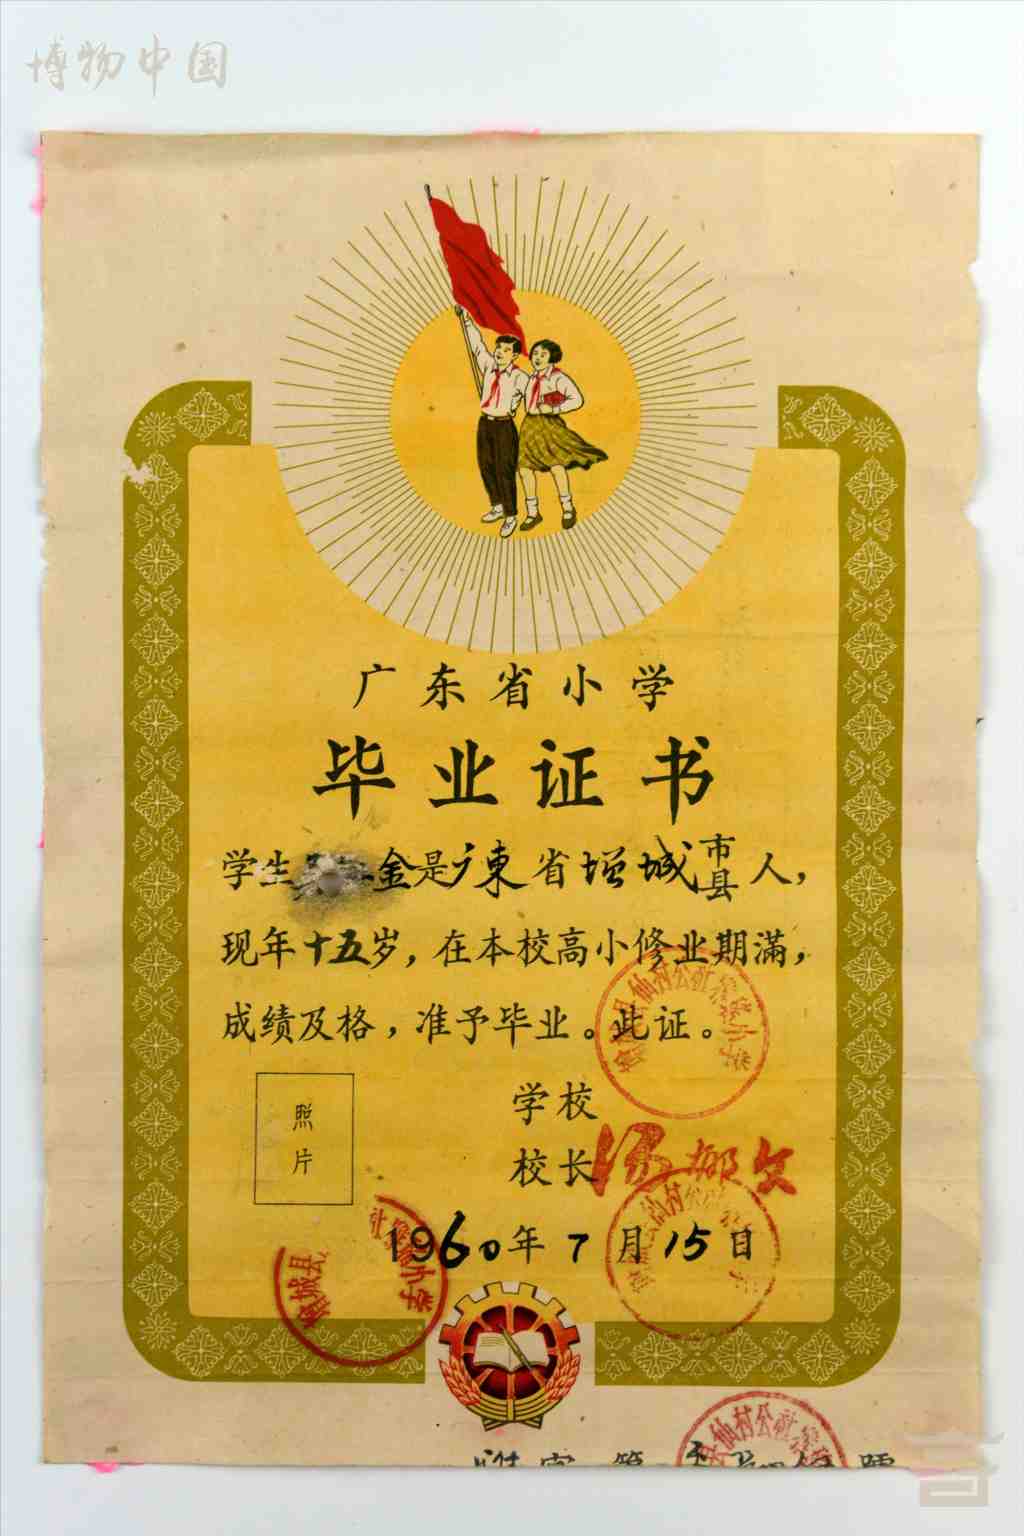 博物中国
广东省小学
毕业证书
学生 金是广東省增城市县人，
现年十五岁，在本校高小修业期满，
成绩及格，准予毕业。此证。
照片
学校
校长
1960年7月15日